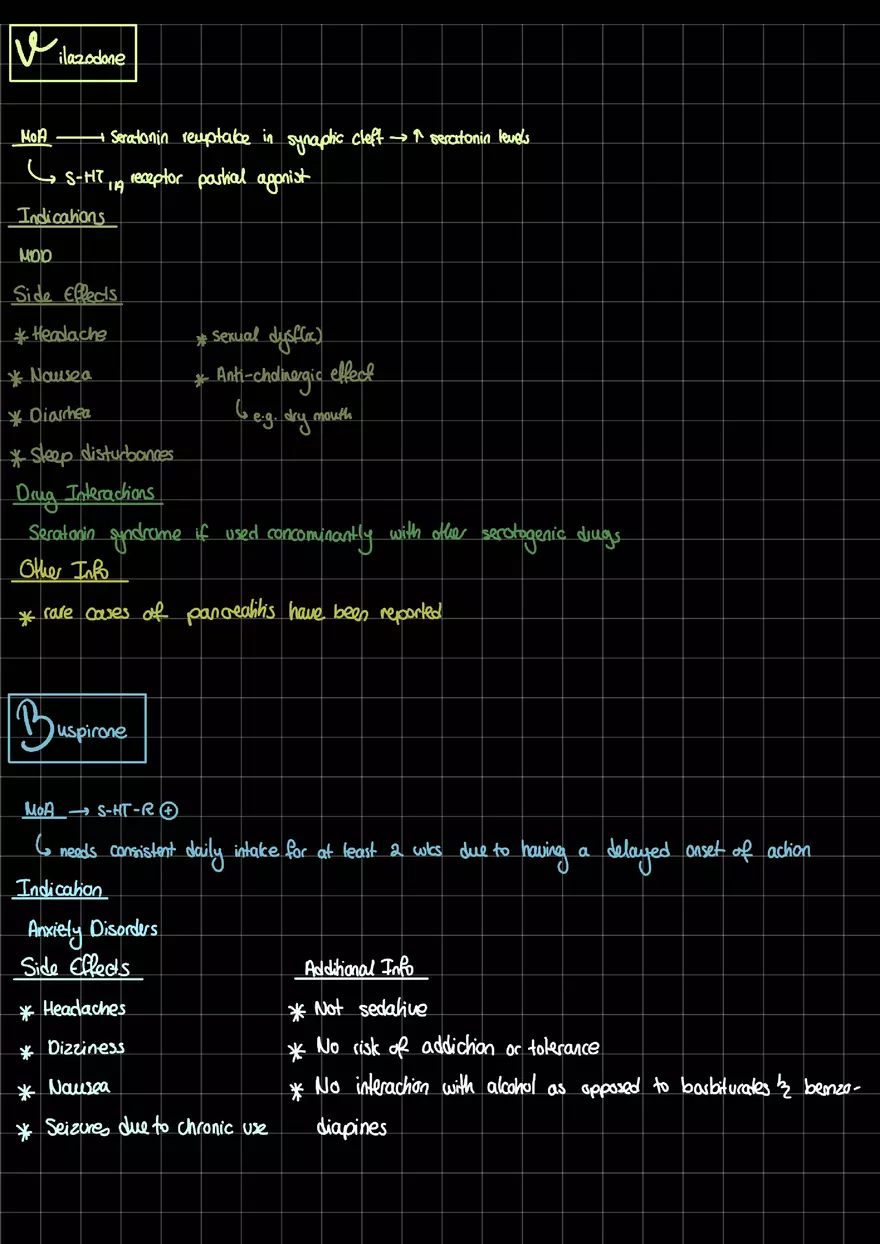 Vilazodone
MoA ⟞ Seratonin reuptake in synaptic cleft → ↑ seratonin levels
↳ 5-HT1A receptor partial agonist
Indications
MDD
Side Effects
* Headache
* Nausea
* Diarrhea
* Sleep disturbances
* Sexual dysf(x)
* Anti-cholinergic effect
↳ e.g. dry mouth
Drug Interactions
Seratonin syndrome if used concominantly with other serotogenic drugs
Other Info
* rare cases of pancreatitis have been reported
Buspirone
MoA → 5-HT-R ⊕
↳ needs consistent daily intake for at least 2 wks due to having a delayed onset of action
Indication
Anxiety Disorders
Side Effects
* Headaches
* Dizziness
* Nausea
* Seizures due to chronic use
Additional Info
* Not sedative
* No risk of addiction or tolerance
* No interaction with alcohol as opposed to barbiturates & benzo-
diapines